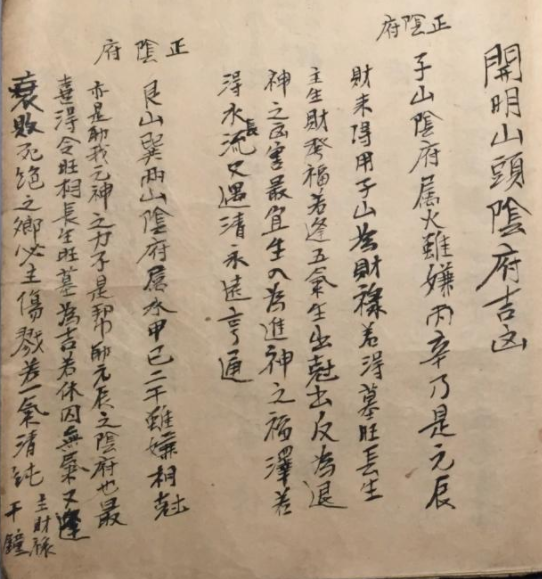 開明山頭陰府吉凶
正陰府
子山陰府属火雖嫌丙辛乃是元辰
財未得用子山為財祿若得墓旺長生
主生財發福若逢五氣生出尅出反為退
神之害最宜生入為進神之福澤若
得水流長又遇清永遠亨通
正陰府
艮山巽両山陰府属水甲己二干雖嫌相尅
亦是助我元神之力于是幫助元辰之陰府也最
喜得令旺相長生旺墓為吉若休囚無氣又逢
衰敗死絶之鄉必主傷戮若一氣清純主財祿千鐘